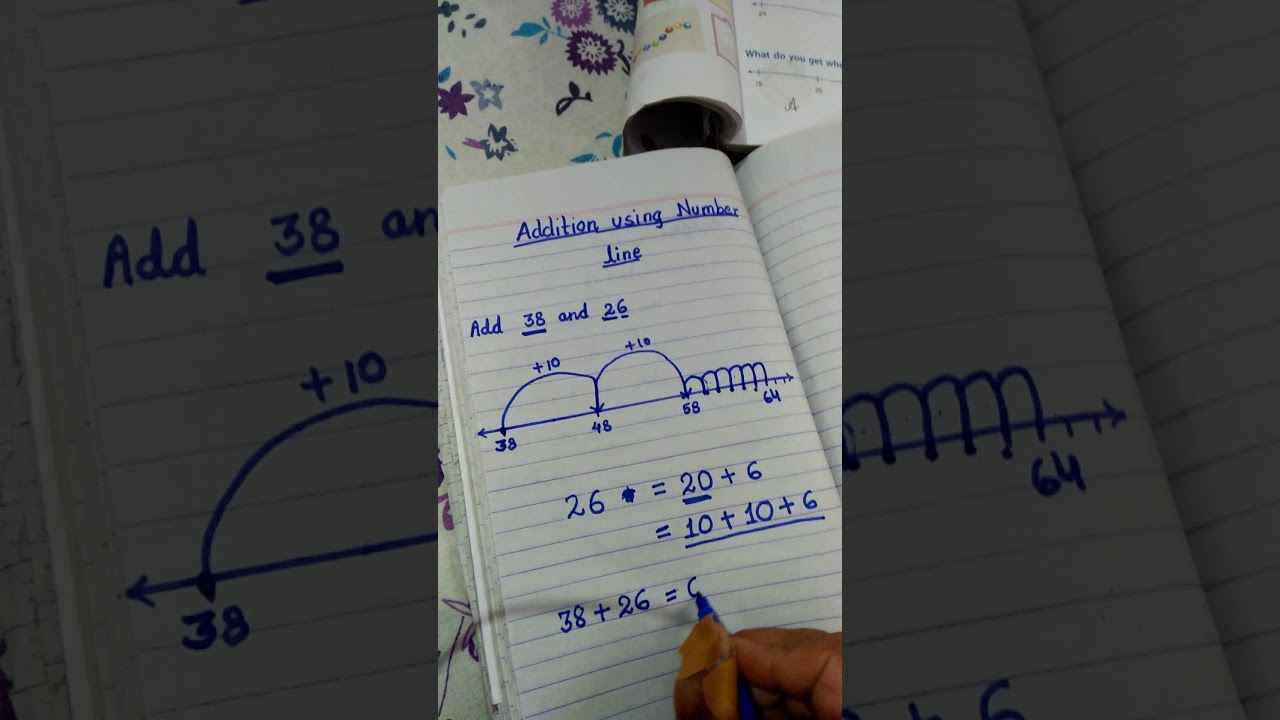 What do you get whe
Addition using Number
line
Add 38 and 26
+10 +10
38 48 58 64
26 = 20 + 6
= 10 + 10 + 6
38 + 26 = 6
Add 38 an
+10
38
64